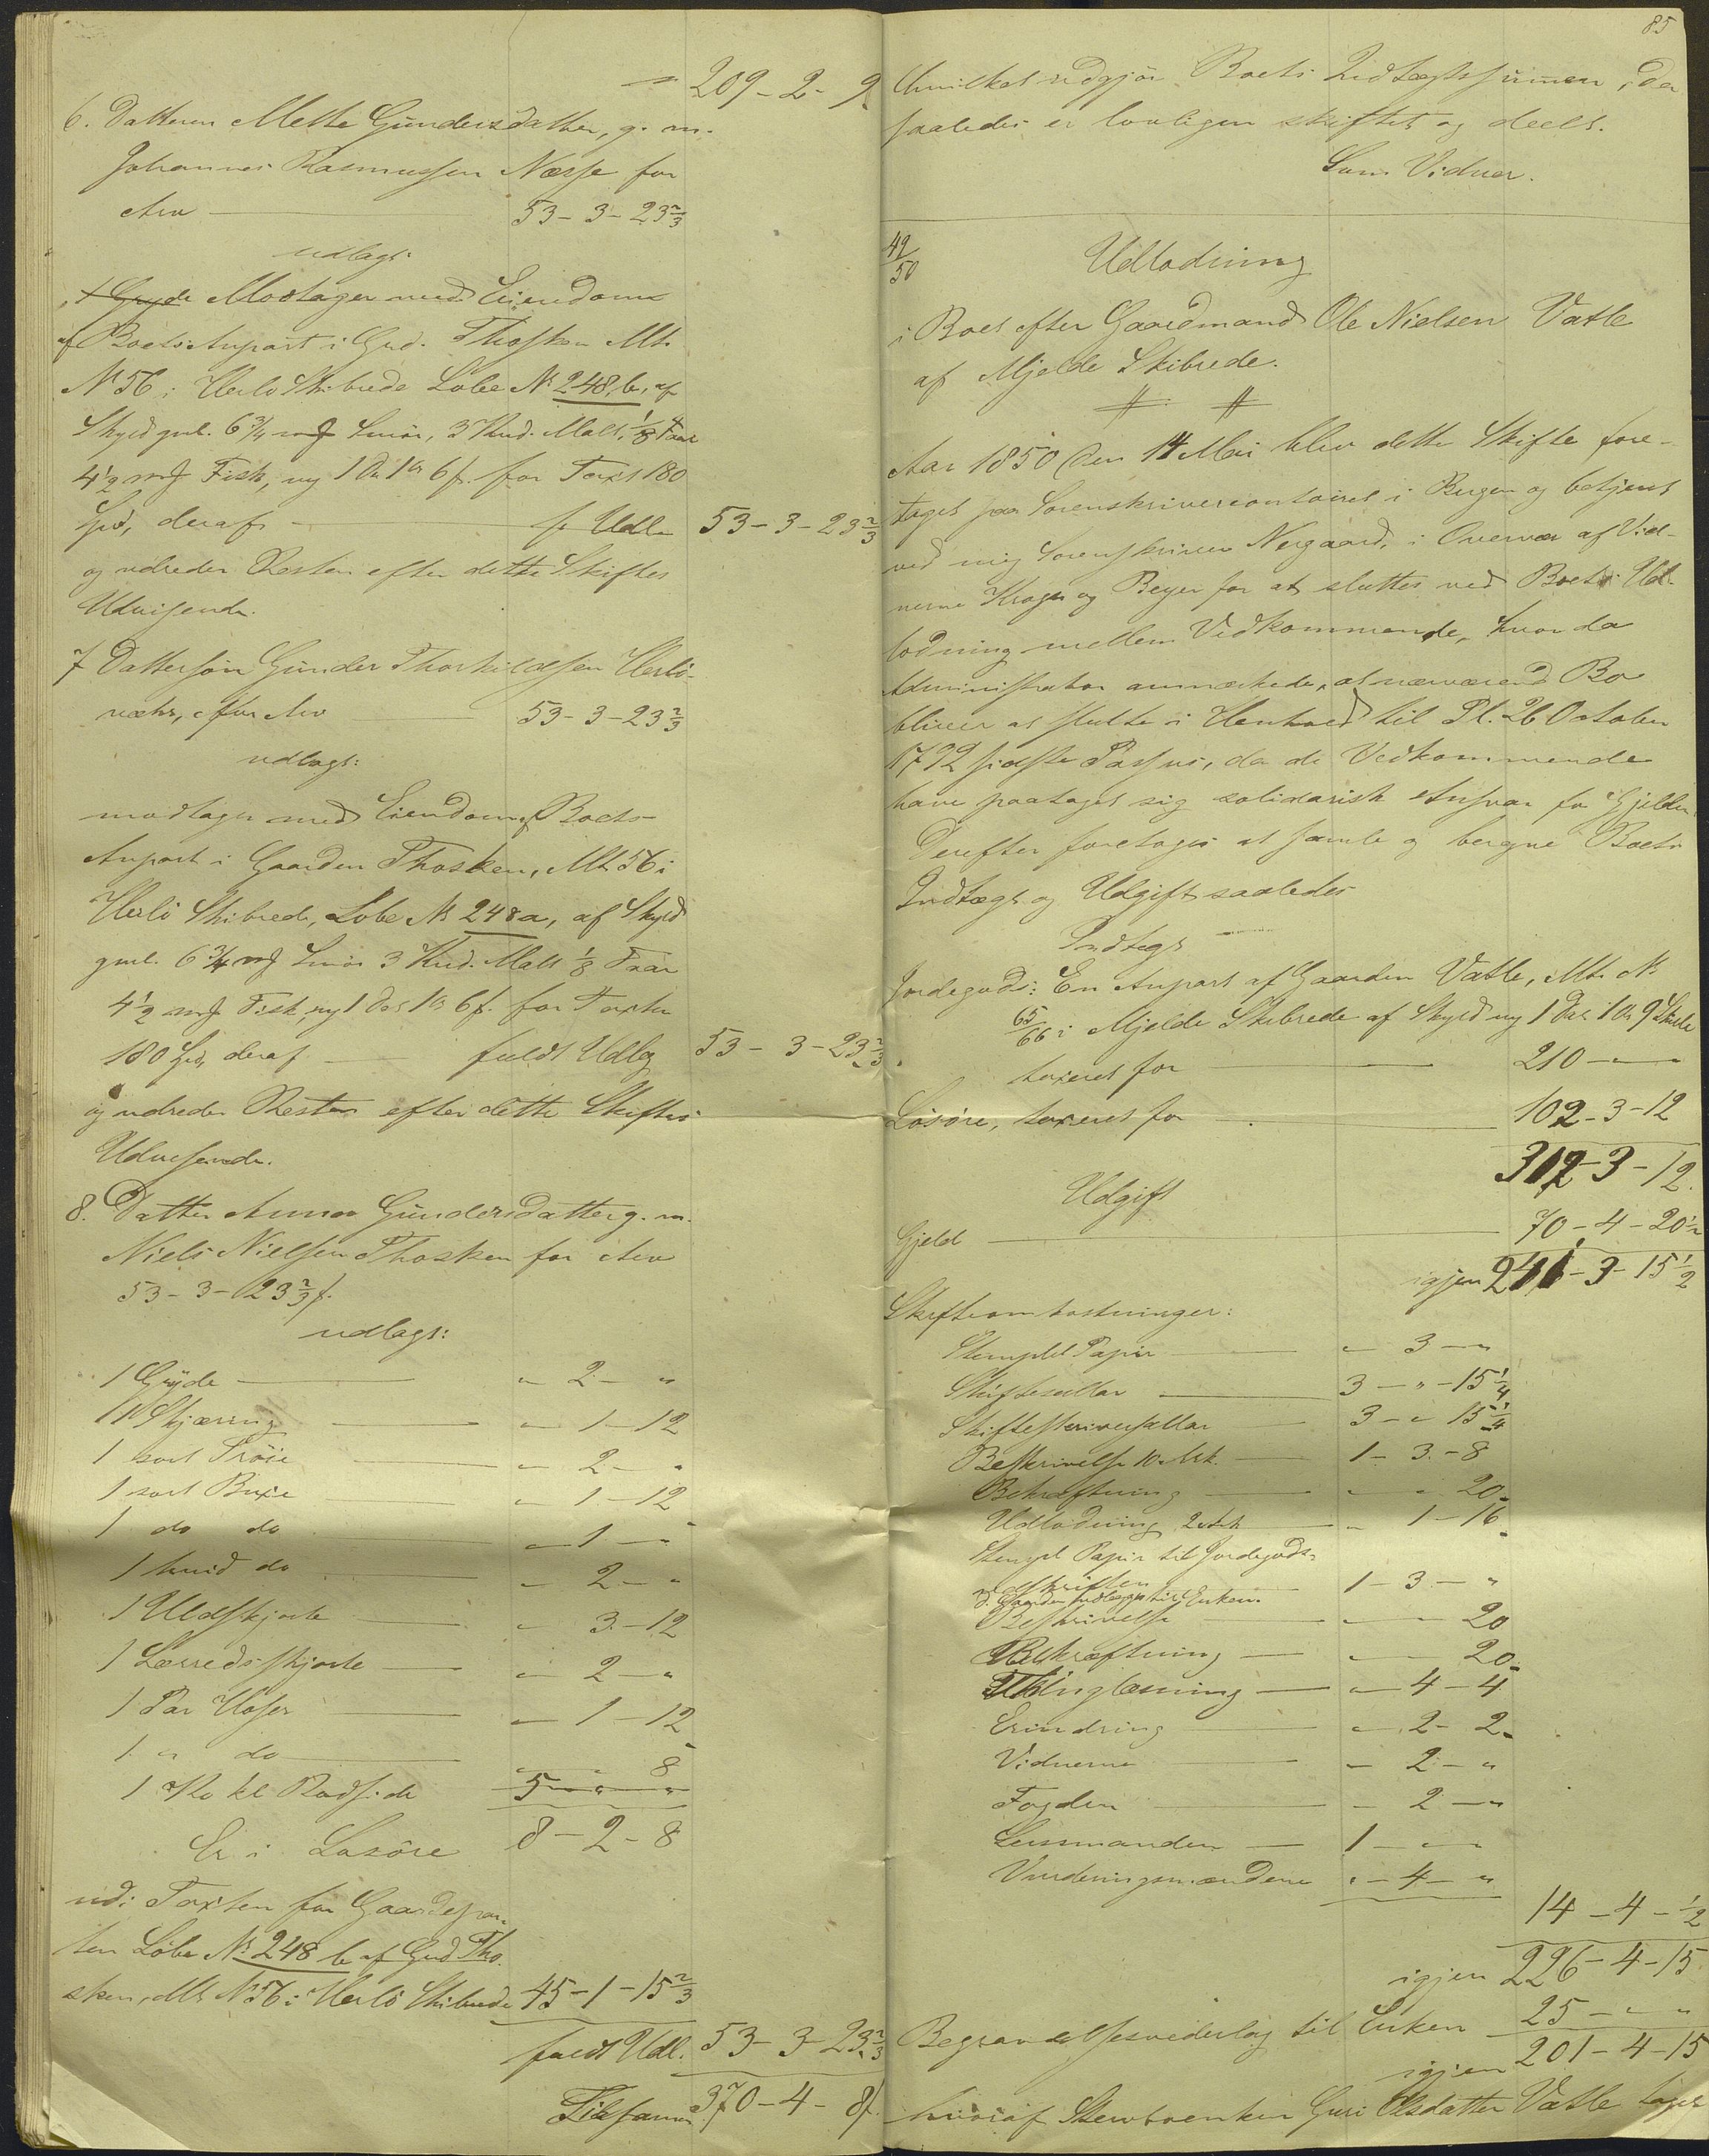 209-2-9
6. Datteren Mette Gundersdatter, g. m.
Johannes Rasmussen Næsse for
Arv 53-3-23 2/3
udlagt:
1 Gryde Modtager med Eiendom
af Boets Anpart i Grd. Thosken Mt.
N 56 i Herlö Skibrede Löbe N. 248, b, af
Skyld gml. 6 3/4 mǬ Smör, 3 Knd. Malt, 1/8 Faar
4 1/2 mǬ Fisk, ny 1 Dr. 1 ort 6 ſ. for Taxt 180
Spd, deraf f. Udl. 53-3-23 2/3
og udreder Resten efter dette Skiftes
Udvisende.
7 Dattersön Gunder Thorkildsen Herlö-
væhr, for Arv 53-3-23 2/3
udlagt:
modtager med Eiendom af Boets
Anpart i Gaarden Thosken, Mt. 56 i
Herlö Skibrede, Löbe N. 248 a, af Skyld
gml. 6 3/4 mǬ Smör 3 Knd. Malt 1/8 Faar
4 1/2 mǬ Fisk, ny 1 Dr. 1 ort 6 ſ. for Taxten
180 Spd, deraf fuldt Udlg 53-3-23 2/3
og udreder Resten efter dette Skiftes
Udvisende.
8. Datter Anna Gundersdatter g. m.
Niels Nielsen Thosken for Arv
53-3-23 2/3 ſ.
udlagt:
1 Gryde " 2 - "
1 Skjæring " 1 - 12
1 sort Tröie " 2 - "
1 sort Buxe " 1 - 12
1 do do " 1 - "
1 hvid do " 2 - "
1 Uldskjorte " 3 - 12
1 Lærredsskjorte " 2 - "
1 Par Hoser " 1 - 12
1 " do " " 8
1 Ko kl. Rødside 5 " "
Er i Løsöre 8-2-8
udi Taxten for Gaardepar-
ten Löbe N. 248 b af Grd Tho-
sken, Mt. N 56 i Herlö Skibrede 45-1-15 2/3
fuldt Udl. 53-3-23 2/3
Tilsammen 370-4-8 ſ.
85
hvilket udgjör Boets Indtægtssummen, der
saaledes er lovligen skiftet og deelt.
Som Vidner.
49/50
Udlodning
i Boet efter Gaardmand Ole Nielsen Vatle
af Mjelde Skibrede.
Aar 1850 den 14 Mai blev dette Skifte fore-
taget paa Sorenskrivercontoiret i Bergen og betjent
ved mig Sorenskriver Nergaard, i Overvær af Vid-
nerne Kroger og Beyer for at sluttes ved Boets Ud-
lodning mellem Vedkommende, hvor da
Administrator anmærkede, at nærværend Bo
bliver at slutte i Henhold til Pl. 26 October
1792 sidste Passus, da de Vedkommende
have paataget sig solidarisk Ansvar for Gjelden.
Derefter foretoges at samle og beregne Boets
Indtægt og Udgift saaledes
Indtægt
Jordegods: En Anpart af Gaarden Vatle, Mt. N.
65/66 i Mjelde Skibrede af Skyld ny 1 Dr. 1 ort 9 Skill
taxeret for 210 - "
Lösöre, taxeret for 102-3-12
312-3-12
Udgift
Gjeld 70-4-20 1/2
igjen 241-3-15 1/2
Skifteomkostninger:
Stemplet Papir " 3 - "
Skiftesallar 3 - " - 15 1/4
Skifteskriversallar 3 - " 15 1/4
Beskrivelse 10 Ark. 1-3-8
Bekræftning " " 20
Udlodning 2 Ark " 1-16
Stempl Papir til Jordegods-
udskriften 1-3-"
d. Gaarden Indlæggs til Enken.
Beskrivelse " 20
Bekræftning " 20
Thinglæsning " 4-4
Erindring " 2-2
Vidnerne " 2 - "
Fogden " 2 - "
Lensmanden 1 - "
Vurderingsmændene " 4 - "
14-4-1/2
igjen 226-4-15
Begravelsesvederlag til Enken 25 - " "
igjen 201-4-15
hvoraf Stervboenken Guri Olsdatter Vatle tager